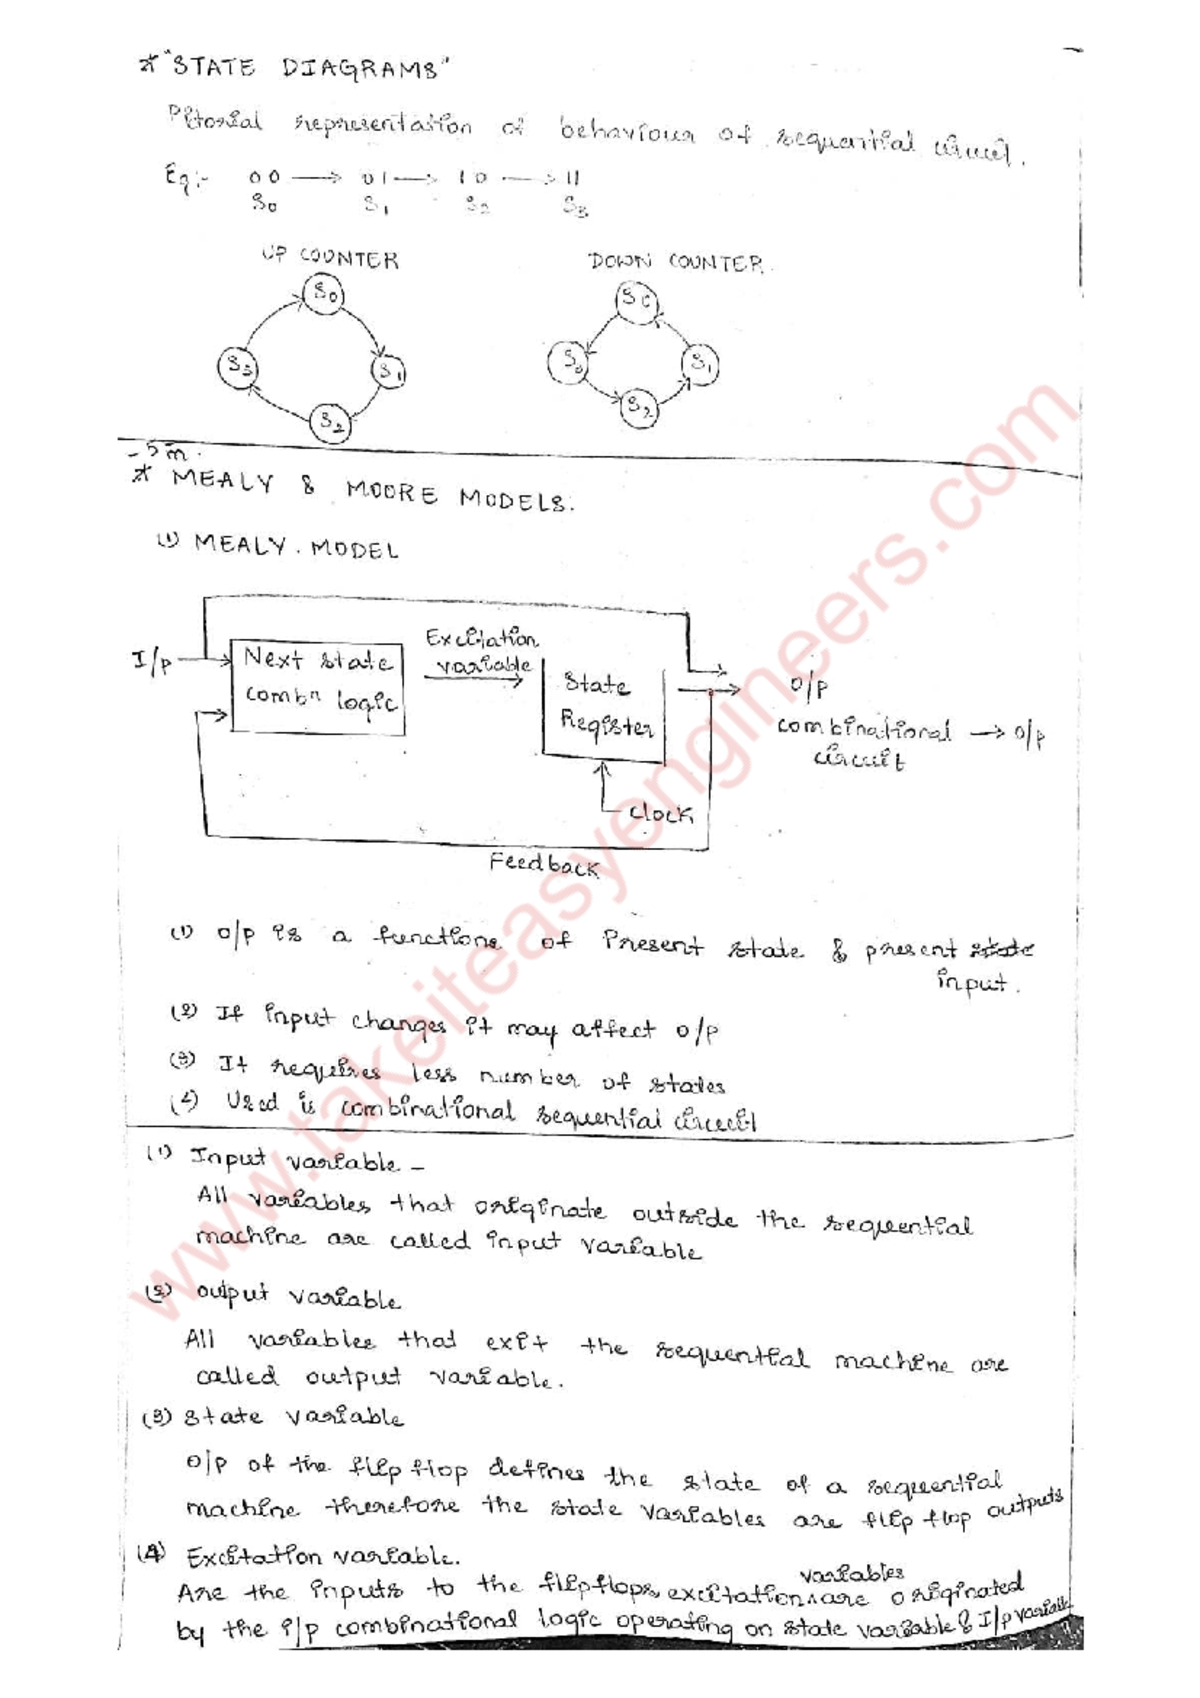 * "STATE DIAGRAMS"
Pitorial representation of behaviour of sequential circuit.
Eg:- 00 → 01 → 10 → 11
S0 S1 S2 S3
UP COUNTER
DOWN COUNTER.
S0
S1
S2
S3
S0
S1
S2
- 5m.
* MEALY & MOORE MODELS.
(1) MEALY. MODEL
I/p
Next state
combn logic
Excitation
variable
State
Register
Clock
Feedback
O/P
combinational → o/p
circuit
(1) o/p is a functions of Present state & present state
input.
(2) If input changes it may affect o/p
(3) It requires less number of states
(4) Used is combinational sequential circuit
(1) Input variable -
All variables that originate outside the sequential
machine are called input variable
(2) output variable
All variables that exit the sequential machine are
called output variable.
(3) state variable
O/p of the flip flop defines the state of a sequential
machine therefore the state variables are flip flop outputs
(4) Excitation variable.
Are the inputs to the flipflops, excitation variables are originated
by the i/p combinational logic operating on state variable & I/p variable
www.takeiteasyengineers.com